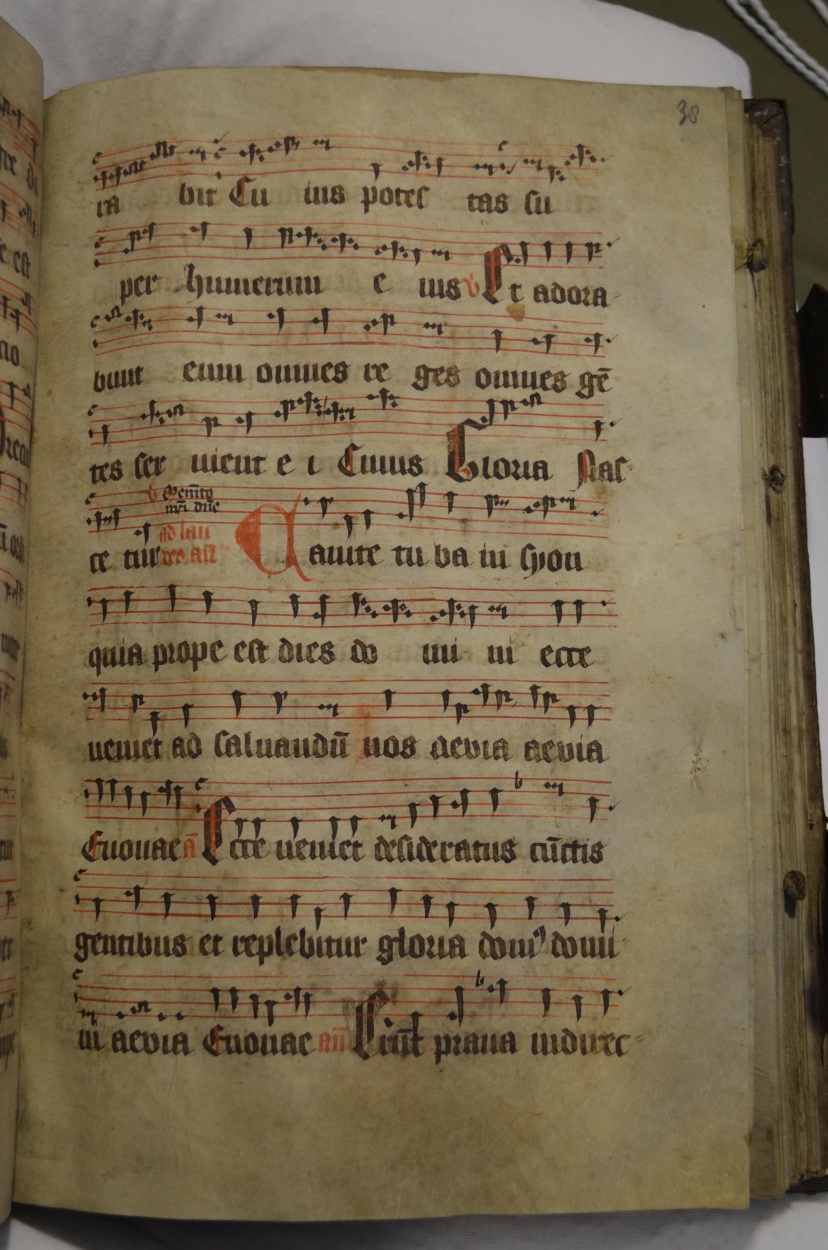 38
ra bit Cu ius potes tas su
per humerum e ius v Et adora
bunt eum omnes re ges omnes gē
tes ser uient e i Cuius Gloria Nas
ce tur ad lau des añ Canite tu ba in syon
quia prope est dies do mi ni ecce
ueniet ad saluandū nos aeuia aeuia
Euouae añ Ecce ueniet desideratus cūctis
gentibus et replebitur gloria dom⁹ domi
ni aeuia Euouae añ Erūt praua in direc